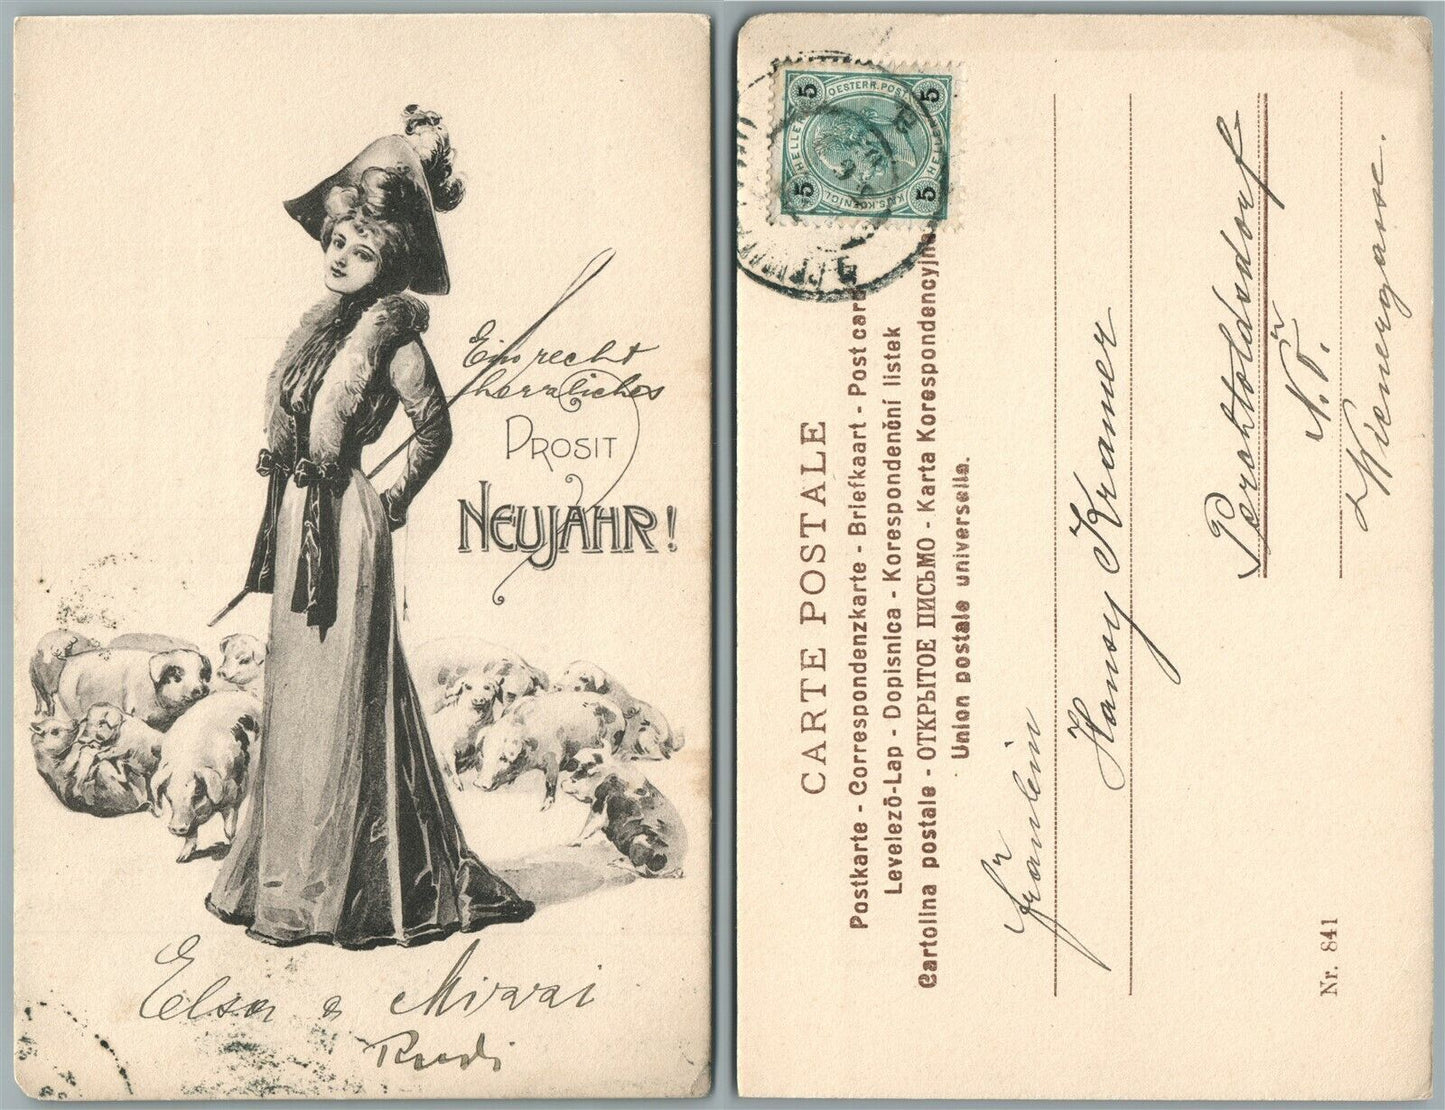 Ein recht
herzliches
PROSIT
NEUJAHR!
Elsa &
Rudi
5 OESTERR. POST 5
HELLER HELLER
5 KAIS. KOENIGL. 5
CARTE POSTALE
Postkarte - Correspondenzkarte - Briefkaart - Post card
Levelező-Lap - Dopisnica - Korespondenční listek
Cartolina postale - ОТКРЫТОЕ ПИСЬМО - Karta Korespondencyjna
Union postale universelle.
Fräulein
Hansy Kramer
Perchtoldsdorf
N.Ö.
Wienergasse.
Nr. 841